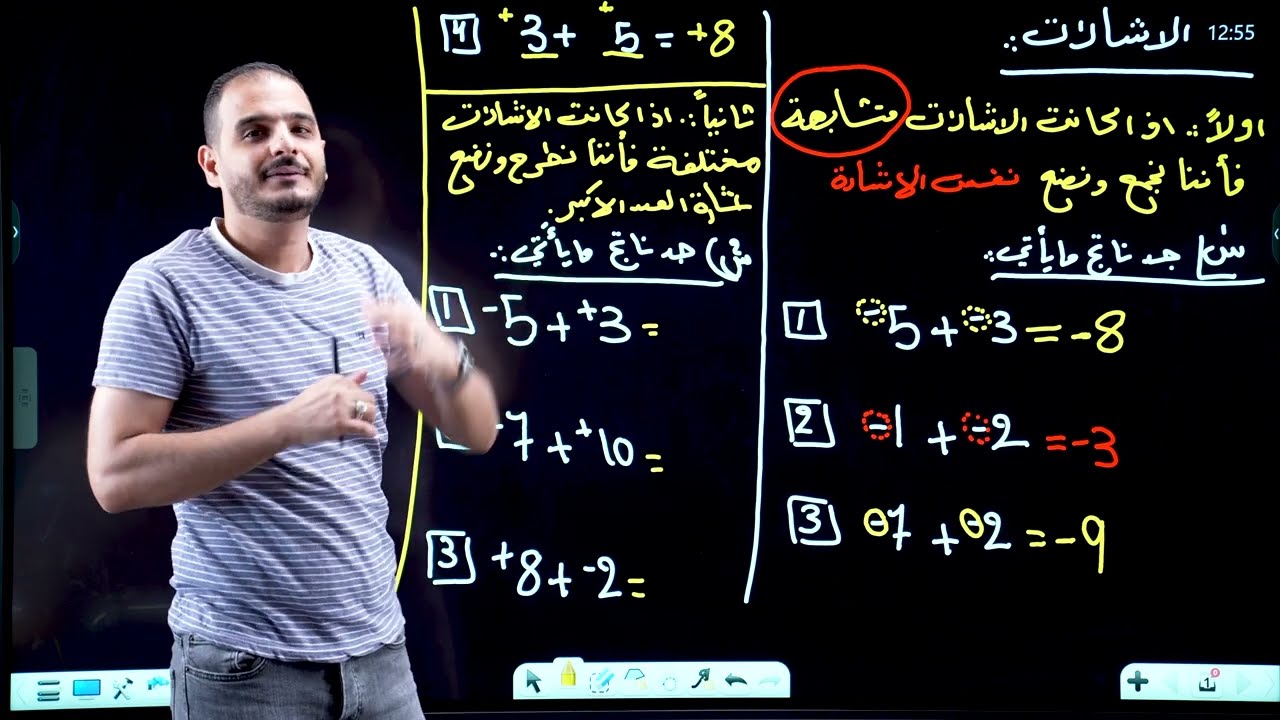 12:55
الاشارات :.
اولاً :. اذا كانت الاشارات متشابهة
فأننا نجمع ونضع نفس الاشارة
س/ جد ناتج مايأتي :.
1 -5 + -3 = -8
2 -1 + -2 = -3
3 -7 + -2 = -9
4 +3 + +5 = +8
ثانياً :. اذا كانت الاشارات
مختلفة فأننا نطرح ونضع
اشارة العدد الاكبر .
س/ جد ناتج مايأتي :.
1 -5 + +3 =
-7 + +10 =
3 +8 + -2 =
1